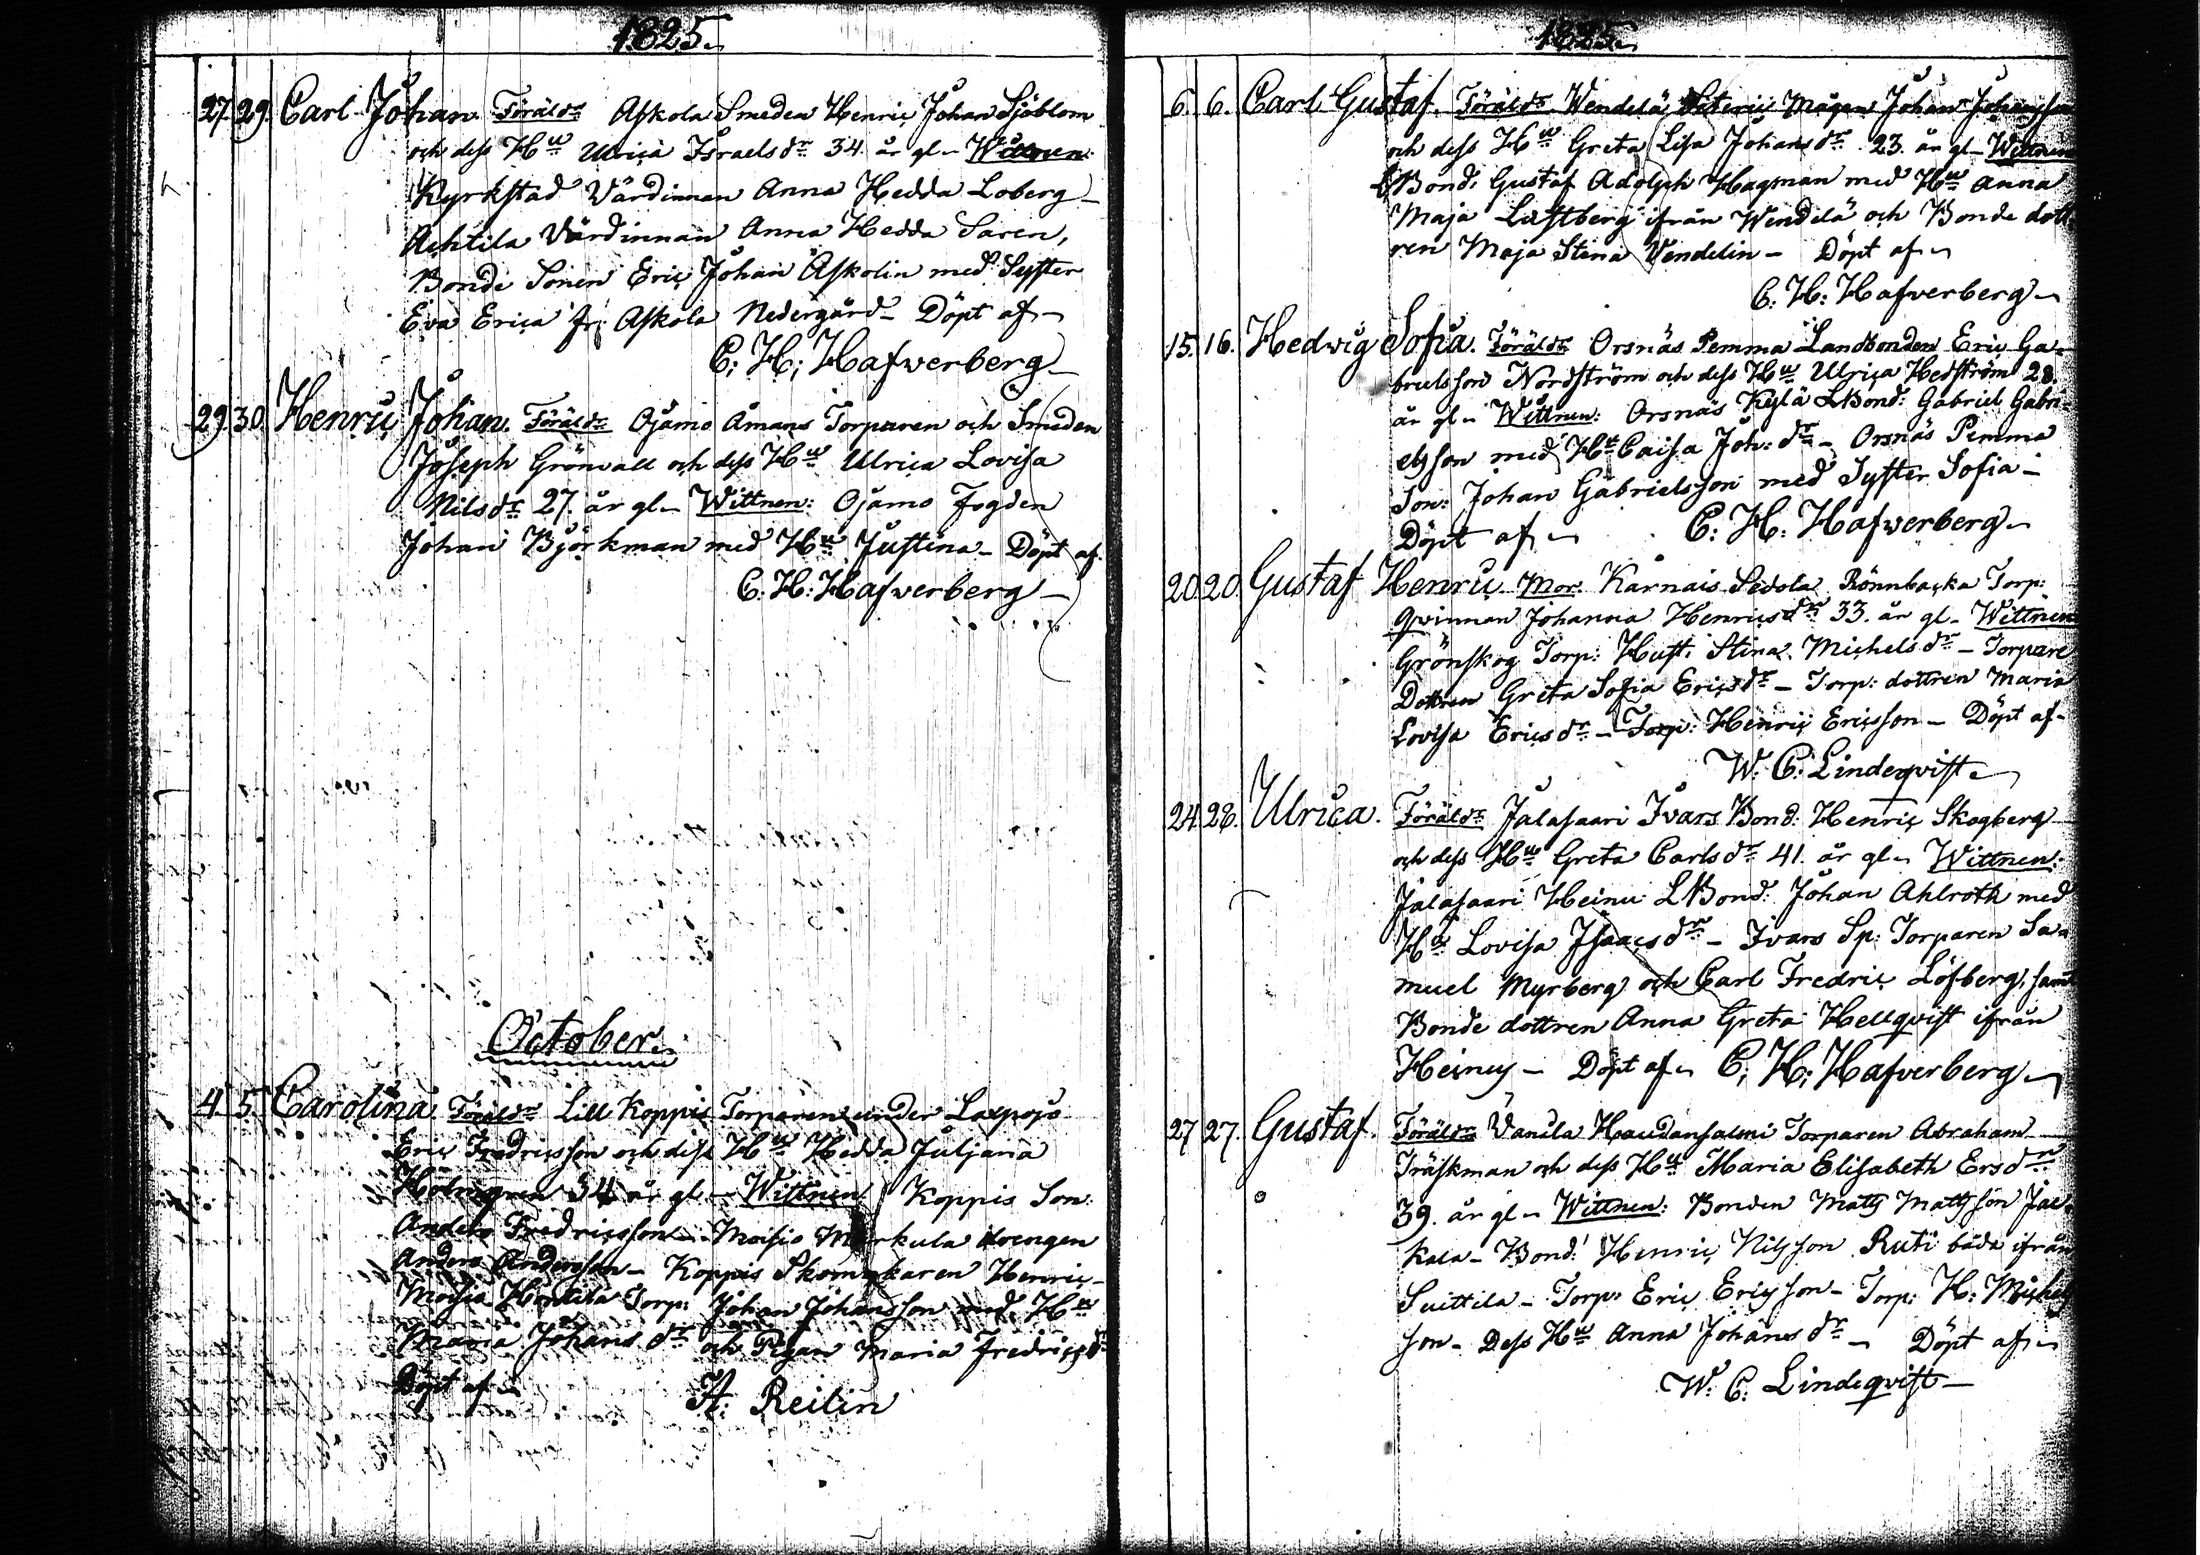 1825.
27. 29. Carl Johan. Föräldr Askola Smeden Henric Johan Sjöblom
och dess Hu Ulrica Israels dr 34 år gl - Wittnen:
Kyrkstad Värdinnan Anna Hedda Loberg -
Achtila Värdinnan Anna Hedda Saren,
Bonde Sonen Eric Johan Askolin med Syster
Eva Erica fr: Askola Nedergård - Döpt af -
C: H: Hafverberg -
29. 30. Henric Johan. Föräldr Ojamo Åmans Torparen och Smeden
Joseph Grönvall och dess Hu Ulrica Lovisa
Nilsdr 27. år gl - Wittnen: Ojamo Fogden
Johan Björkman med Hu Justina - Döpt af
C: H: Hafverberg -
October.
4. 5. Carolina Föräldr Lill Koppis Torparen under Laxpojo
Eric Fredricsson och dess Hu Hedda Juljana
Holmgren 34 år gl - Wittnen: Koppis Son:
Anders Fredricsson - Moisio Markula drengen
Anders Andersson - Koppis Skomakaren Henric -
Moisio Hentila Torp: Johan Johansson med Hu
Maria Johans dr och Pigan Maria Fredrics dr
Döpt af - A: Reilin
1825.
6. 6. Carl Gustaf. Föräldr Wendelä Mågen Johan Johansson
och dess Hu Greta Lisa Johans dr 23. år gl - Wittnen
Bond: Gustaf Adolph Hagman med Hu Anna
Maja Lastberg ifrån Wendelä och Bonde dott
ren Maja Stina Vendelin - Döpt af -
C: H: Hafverberg -
15. 16. Hedwig Sofia. Föräldr Orsnäs Pemma Landbonden Eric Ga-
brielsson Nordström och dess Hu Ulrica Hedström 28.
år gl - Wittnen: Orsnäs Kylä LBond: Gabriel Gabri-
elsson med Hu Caisa Joh: dr - Orsnäs Pemma
Son: Johan Gabrielsson med Syster Sofia -
Döpt af - C: H: Hafverberg -
20 20. Gustaf Henric Mor. Karnais Sedola Rönnbacka Torp:
qvinnan Johanna Henrics dr 33. år gl - Wittnen
Grönskog Torp: Hust: Stina Michels dr - Torpare
Dottren Greta Sofia Erics dr - Torp: dottren Maria
Lovisa Erics dr - Torp: Henric Ericsson - Döpt af -
W: C: Lindeqvist -
24 28. Ulrica. Föräldr Jalasaari Ivars Bond: Henric Skogberg
och dess Hu Greta Carls dr 41. år gl - Wittnen:
Jalasaari Heinu LBond: Johan Ahlroth med
Hu Lovisa Isaacs dr - Ivars Sp: Torparen Sa-
muel Myrberg och Carl Fredric Löfberg, samt
Bonde dottren Anna Greta Hellqvist ifrån
Heiney - Döpt af - C: H: Hafverberg -
27 27. Gustaf. Föräldr Vanila Haudansalmi Torparen Abraham
Träskman och dess Hu Maria Elisabeth Ers dr
39. år gl - Wittnen: Bonden Matts Mattsson Jac-
kala - Bond: Henric Nilsson Ruti båda ifrån
Suittila - Torp: Eric Ericsson - Torp: H: Michels
son - Dess Hu Anna Johans dr - Döpt af -
W: C: Lindeqvist -